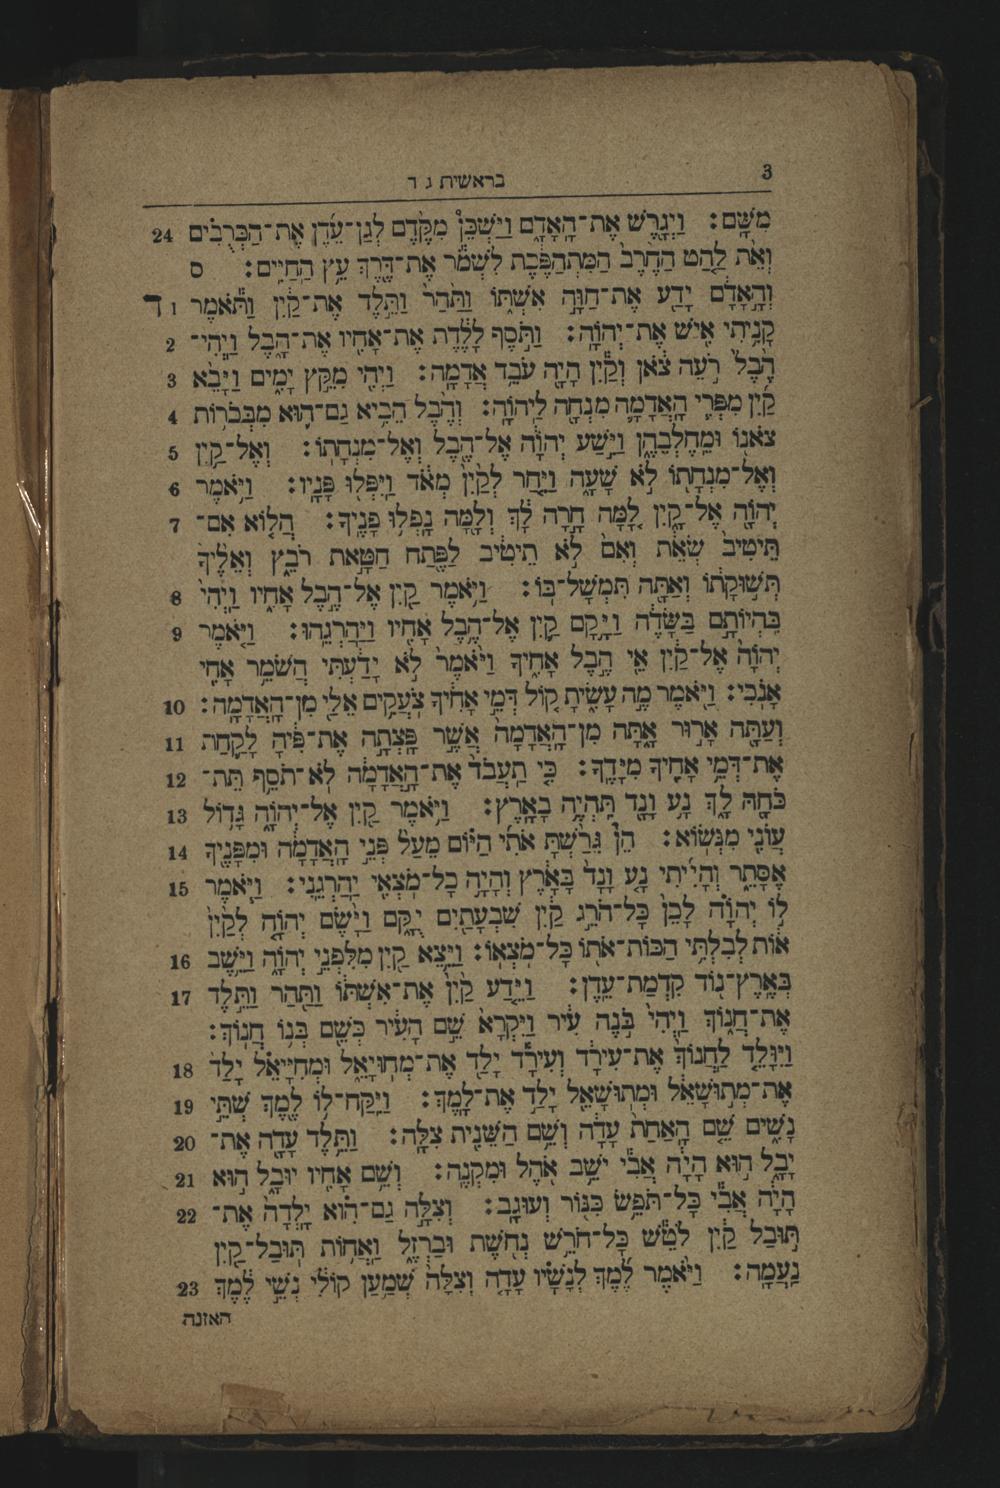 3
בראשית ג ד
מִשָּׁם׃ וַיְגָרֶשׁ אֶת־הָאָדָם וַיַּשְׁכֵּן מִקֶּדֶם לְגַן־עֵדֶן אֶת־הַכְּרֻבִים 24
וְאֵת לַהַט הַחֶרֶב הַמִּתְהַפֶּכֶת לִשְׁמֹר אֶת־דֶּרֶךְ עֵץ הַחַיִּים׃ ס
וְהָאָדָם יָדַע אֶת־חַוָּה אִשְׁתּוֹ וַתַּהַר וַתֵּלֶד אֶת־קַיִן וַתֹּאמֶר 1 ד
קָנִיתִי אִישׁ אֶת־יְהוָה׃ וַתֹּסֶף לָלֶדֶת אֶת־אָחִיו אֶת־הָבֶל וַיְהִי־ 2
הֶבֶל רֹעֵה צֹאן וְקַיִן הָיָה עֹבֵד אֲדָמָה׃ וַיְהִי מִקֵּץ יָמִים וַיָּבֵא 3
קַיִן מִפְּרִי הָאֲדָמָה מִנְחָה לַיהוָה׃ וְהֶבֶל הֵבִיא גַם־הוּא מִבְּכֹרוֹת 4
צֹאנוֹ וּמֵחֶלְבֵהֶן וַיִּשַׁע יְהוָה אֶל־הֶבֶל וְאֶל־מִנְחָתוֹ׃ וְאֶל־קַיִן 5
וְאֶל־מִנְחָתוֹ לֹא שָׁעָה וַיִּחַר לְקַיִן מְאֹד וַיִּפְּלוּ פָּנָיו׃ וַיֹּאמֶר 6
יְהוָה אֶל־קָיִן לָמָּה חָרָה לָךְ וְלָמָּה נָפְלוּ פָנֶיךָ׃ הֲלוֹא אִם־ 7
תֵּיטִיב שְׂאֵת וְאִם לֹא תֵיטִיב לַפֶּתַח חַטָּאת רֹבֵץ וְאֵלֶיךָ
תְּשׁוּקָתוֹ וְאַתָּה תִּמְשָׁל־בּוֹ׃ וַיֹּאמֶר קַיִן אֶל־הֶבֶל אָחִיו וַיְהִי 8
בִּהְיוֹתָם בַּשָּׂדֶה וַיָּקָם קַיִן אֶל־הֶבֶל אָחִיו וַיַּהַרְגֵהוּ׃ וַיֹּאמֶר 9
יְהוָה אֶל־קַיִן אֵי הֶבֶל אָחִיךָ וַיֹּאמֶר לֹא יָדַעְתִּי הֲשֹׁמֵר אָחִי
אָנֹכִי׃ וַיֹּאמֶר מֶה עָשִׂיתָ קוֹל דְּמֵי אָחִיךָ צֹעֲקִים אֵלַי מִן־הָאֲדָמָה׃ 10
וְעַתָּה אָרוּר אָתָּה מִן־הָאֲדָמָה אֲשֶׁר פָּצְתָה אֶת־פִּיהָ לָקַחַת 11
אֶת־דְּמֵי אָחִיךָ מִיָּדֶךָ׃ כִּי תַעֲבֹד אֶת־הָאֲדָמָה לֹא־תֹסֵף תֵּת־ 12
כֹּחָהּ לָךְ נָע וָנָד תִּהְיֶה בָאָרֶץ׃ וַיֹּאמֶר קַיִן אֶל־יְהוָה גָּדוֹל 13
עֲוֹנִי מִנְּשׂוֹא׃ הֵן גֵּרַשְׁתָּ אֹתִי הַיּוֹם מֵעַל פְּנֵי הָאֲדָמָה וּמִפָּנֶיךָ 14
אֶסָּתֵר וְהָיִיתִי נָע וָנָד בָּאָרֶץ וְהָיָה כָל־מֹצְאִי יַהַרְגֵנִי׃ וַיֹּאמֶר 15
לוֹ יְהוָה לָכֵן כָּל־הֹרֵג קַיִן שִׁבְעָתַיִם יֻקָּם וַיָּשֶׂם יְהוָה לְקַיִן
אוֹת לְבִלְתִּי הַכּוֹת־אֹתוֹ כָּל־מֹצְאוֹ׃ וַיֵּצֵא קַיִן מִלִּפְנֵי יְהוָה וַיֵּשֶׁב 16
בְּאֶרֶץ־נוֹד קִדְמַת־עֵדֶן׃ וַיֵּדַע קַיִן אֶת־אִשְׁתּוֹ וַתַּהַר וַתֵּלֶד 17
אֶת־חֲנוֹךְ וַיְהִי בֹּנֶה עִיר וַיִּקְרָא שֵׁם הָעִיר כְּשֵׁם בְּנוֹ חֲנוֹךְ׃
וַיִּוָּלֵד לַחֲנוֹךְ אֶת־עִירָד וְעִירָד יָלַד אֶת־מְחוּיָאֵל וּמְחִיָּיאֵל יָלַד 18
אֶת־מְתוּשָׁאֵל וּמְתוּשָׁאֵל יָלַד אֶת־לָמֶךְ׃ וַיִּקַּח־לוֹ לֶמֶךְ שְׁתֵּי 19
נָשִׁים שֵׁם הָאַחַת עָדָה וְשֵׁם הַשֵּׁנִית צִלָּה׃ וַתֵּלֶד עָדָה אֶת־ 20
יָבָל הוּא הָיָה אֲבִי יֹשֵׁב אֹהֶל וּמִקְנֶה׃ וְשֵׁם אָחִיו יוּבָל הוּא 21
הָיָה אֲבִי כָּל־תֹּפֵשׂ כִּנּוֹר וְעוּגָב׃ וְצִלָּה גַם־הִוא יָלְדָה אֶת־ 22
תּוּבַל קַיִן לֹטֵשׁ כָּל־חֹרֵשׁ נְחֹשֶׁת וּבַרְזֶל וַאֲחוֹת תּוּבַל־קַיִן
נַעֲמָה׃ וַיֹּאמֶר לֶמֶךְ לְנָשָׁיו עָדָה וְצִלָּה שְׁמַעַן קוֹלִי נְשֵׁי לֶמֶךְ 23
האזנה